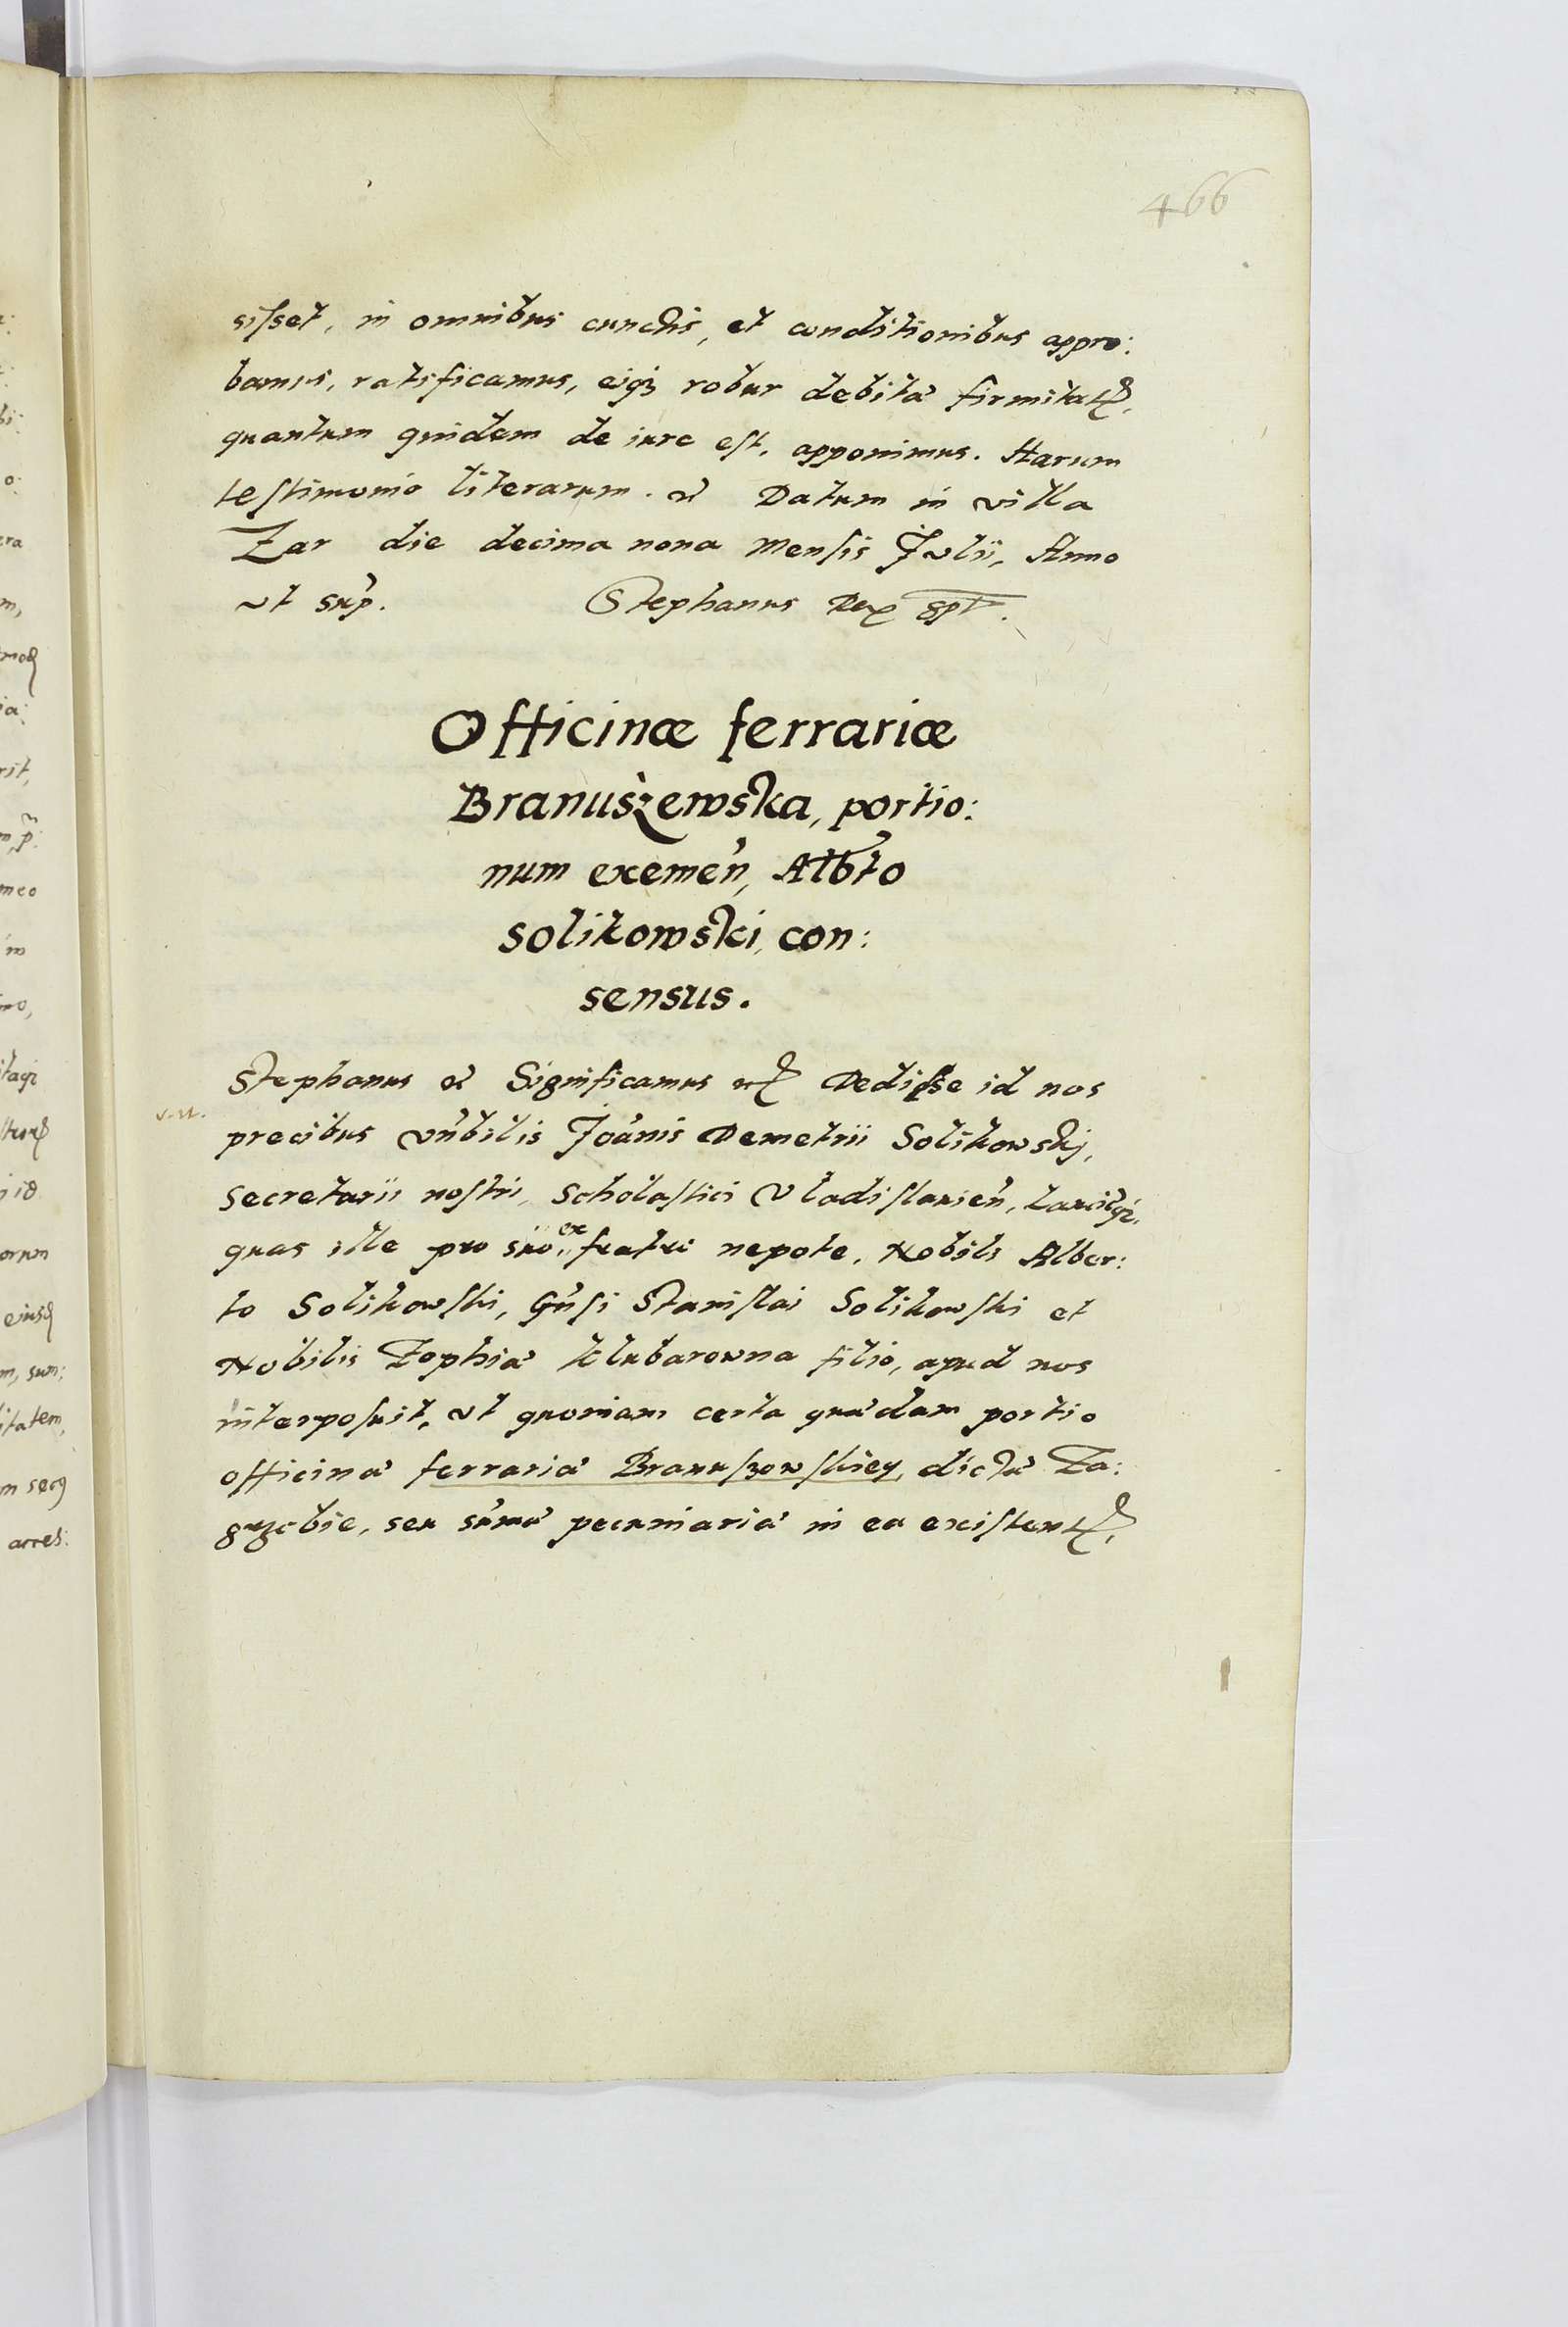 466
sisset, in omnibus cunctis, et conditionibus appro:
bamus, ratificamus, eiqȝ robur debitæ firmitatꝭ,
quantum quidem de iure est, apponimus. Harum
testimonio literarum. &c Datum in villa
Zar die decima nona Mensis Julii, Anno
ut sup̃.
Stephanus Rex sspt.
Officinæ ferrariæ
Branuszewska, portio:
num exemeñ, Alb̃to
Solikowski, con:
sensus.
Stephanus &c Significamus &c Dedisse id nos
precibus Vñbilis Joãnis Demetrii Solikowskj,
Secretarii nostri, Scholastici Vladislavieñ, Lancicq̃,
quas ille pro suo ex fratre nepote, Nobili Alber:
to Solikowski, Gñsi Stanislai Solikowski et
Nobilis Zophiæ Klubarowna filio, apud nos
interposuit, ut quoniam certa quædam portio
officinæ ferrariæ Branuszowskiey, dictæ Za:
grzebie, seu sũmæ pecuniariæ in ea existentꝭ,